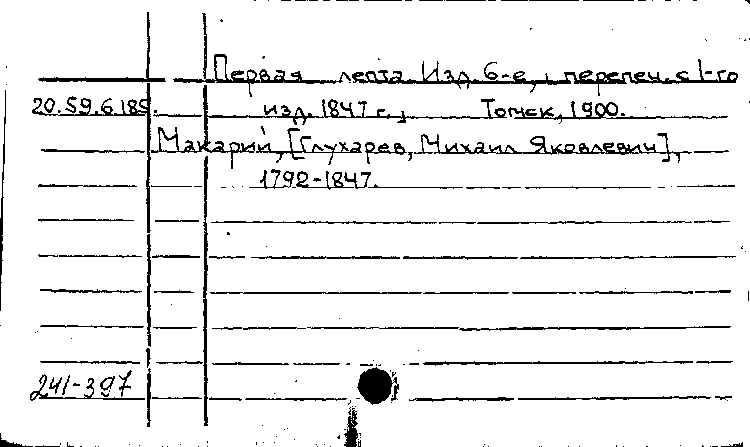 [Первая лепта. Изд. 6-е, перепеч. с 1-го
20.59.6.185. изд. 1847 г., Томск, 1900.
Макарий, [Глухарев, Михаил Яковлевич],
1792-1847.
241-397